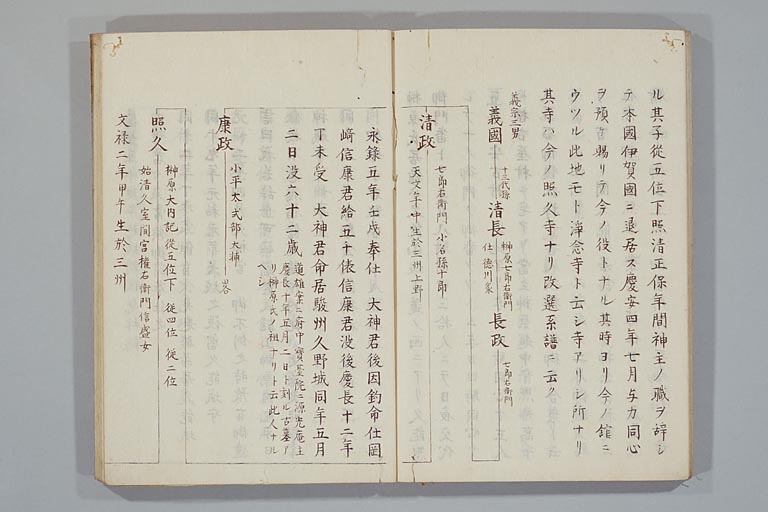 ル其子從五位下照清正保年間神主ノ職ヲ辞シ
テ本國伊賀國ニ退居ス慶安四年七月与力同心
ヲ預ケ賜リテ今ノ役トナル其時ヨリ今ノ館ニ
ウツル此地モト浄念寺ト云シ寺アリシ所ナリ
其寺ハ今ノ照久寺ナリ改選系譜ニ云ク
義宗三男
義國
十三代孫
清長
榊原七郎右衛門
仕德川家
長政
七郎右衛門
清政
七郎右衛門 小治 孫十郎
天文 年 中生於三州上野
永錄五年壬戌奉仕 大神君後因鈞命仕岡
崎信康君給五千俵信康君没後慶長十二年
丁未受 大神君命居駿州久野城同年五月
二日没六十二歳
道雄案ニ府中寳䑓院ニ源光庵主
慶長十年五月二日ト刻ル古墓ア
リ榊原氏ノ祖ナリト云此人ナル
ヘシ
康政
小平太 式部大輔
畧
照久
榊原大内記 從五位下 從四位 從二位
始清久 室間宮權右衛門信盛女
文禄二年甲午生於三州